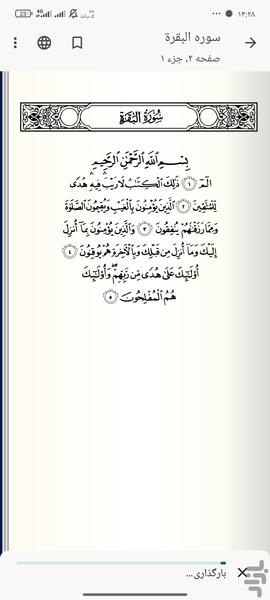 ۱۴:۲۸
4G
23
سوره البقرة
صفحه ۲، جزء ۱
سُورَةُ البَقَرَةِ
بِسْمِ اللَّهِ الرَّحْمَٰنِ الرَّحِيمِ
الٓمٓ ۝١ ذَٰلِكَ الْكِتَٰبُ لَا رَيْبَ ۛ فِيهِ ۛ هُدًى
لِّلْمُتَّقِينَ ۝٢ الَّذِينَ يُؤْمِنُونَ بِالْغَيْبِ وَيُقِيمُونَ الصَّلَوٰةَ
وَمِمَّا رَزَقْنَٰهُمْ يُنفِقُونَ ۝٣ وَالَّذِينَ يُؤْمِنُونَ بِمَآ أُنزِلَ
إِلَيْكَ وَمَآ أُنزِلَ مِن قَبْلِكَ وَبِالْءَاخِرَةِ هُمْ يُوقِنُونَ ۝٤
أُو۟لَٰٓئِكَ عَلَىٰ هُدًى مِّن رَّبِّهِمْ ۖ وَأُو۟لَٰٓئِكَ
هُمُ الْمُفْلِحُونَ ۝٥
بارگذاری...